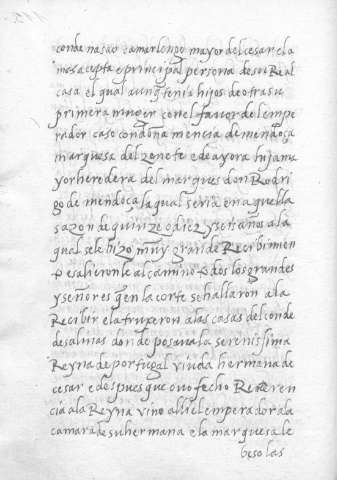 conde nasao camarlengo mayor del cesar e la
mas acepta e principal persona de su Real
casa el qual aunq̃ tenia hijos de otra su
primera muger con el favor del empe
rador caso con doña mencia de mendoça
marquesa del zenete e de ayora hija ma
yor heredera del marques don Rodri
go de mendoça la qual seria en aquella
sazon de quinze o diez y seis anos a la
qual se le hizo muy grande Recibimien
to e salieron le al camino todos los grandes
y señores q̃ en la corte se hallaron a la
Recibir e la truxeron a las casas del conde
de salinas donde posava la serenissima
Reyna de portugal viuda hermana de
cesar e despues que ovo fecho Reveren
cia a la Reyna vino alli el emperador a la
camara de su hermana e la marquesa le
beso las